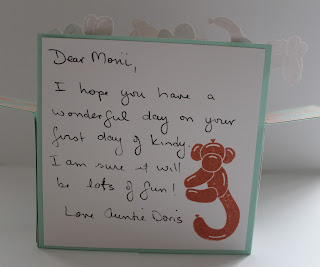 Dear Monii,
I hope you have a
wonderful day on your
first day of kindy.
I am sure it will
be lots of fun!
Love Auntie Doris